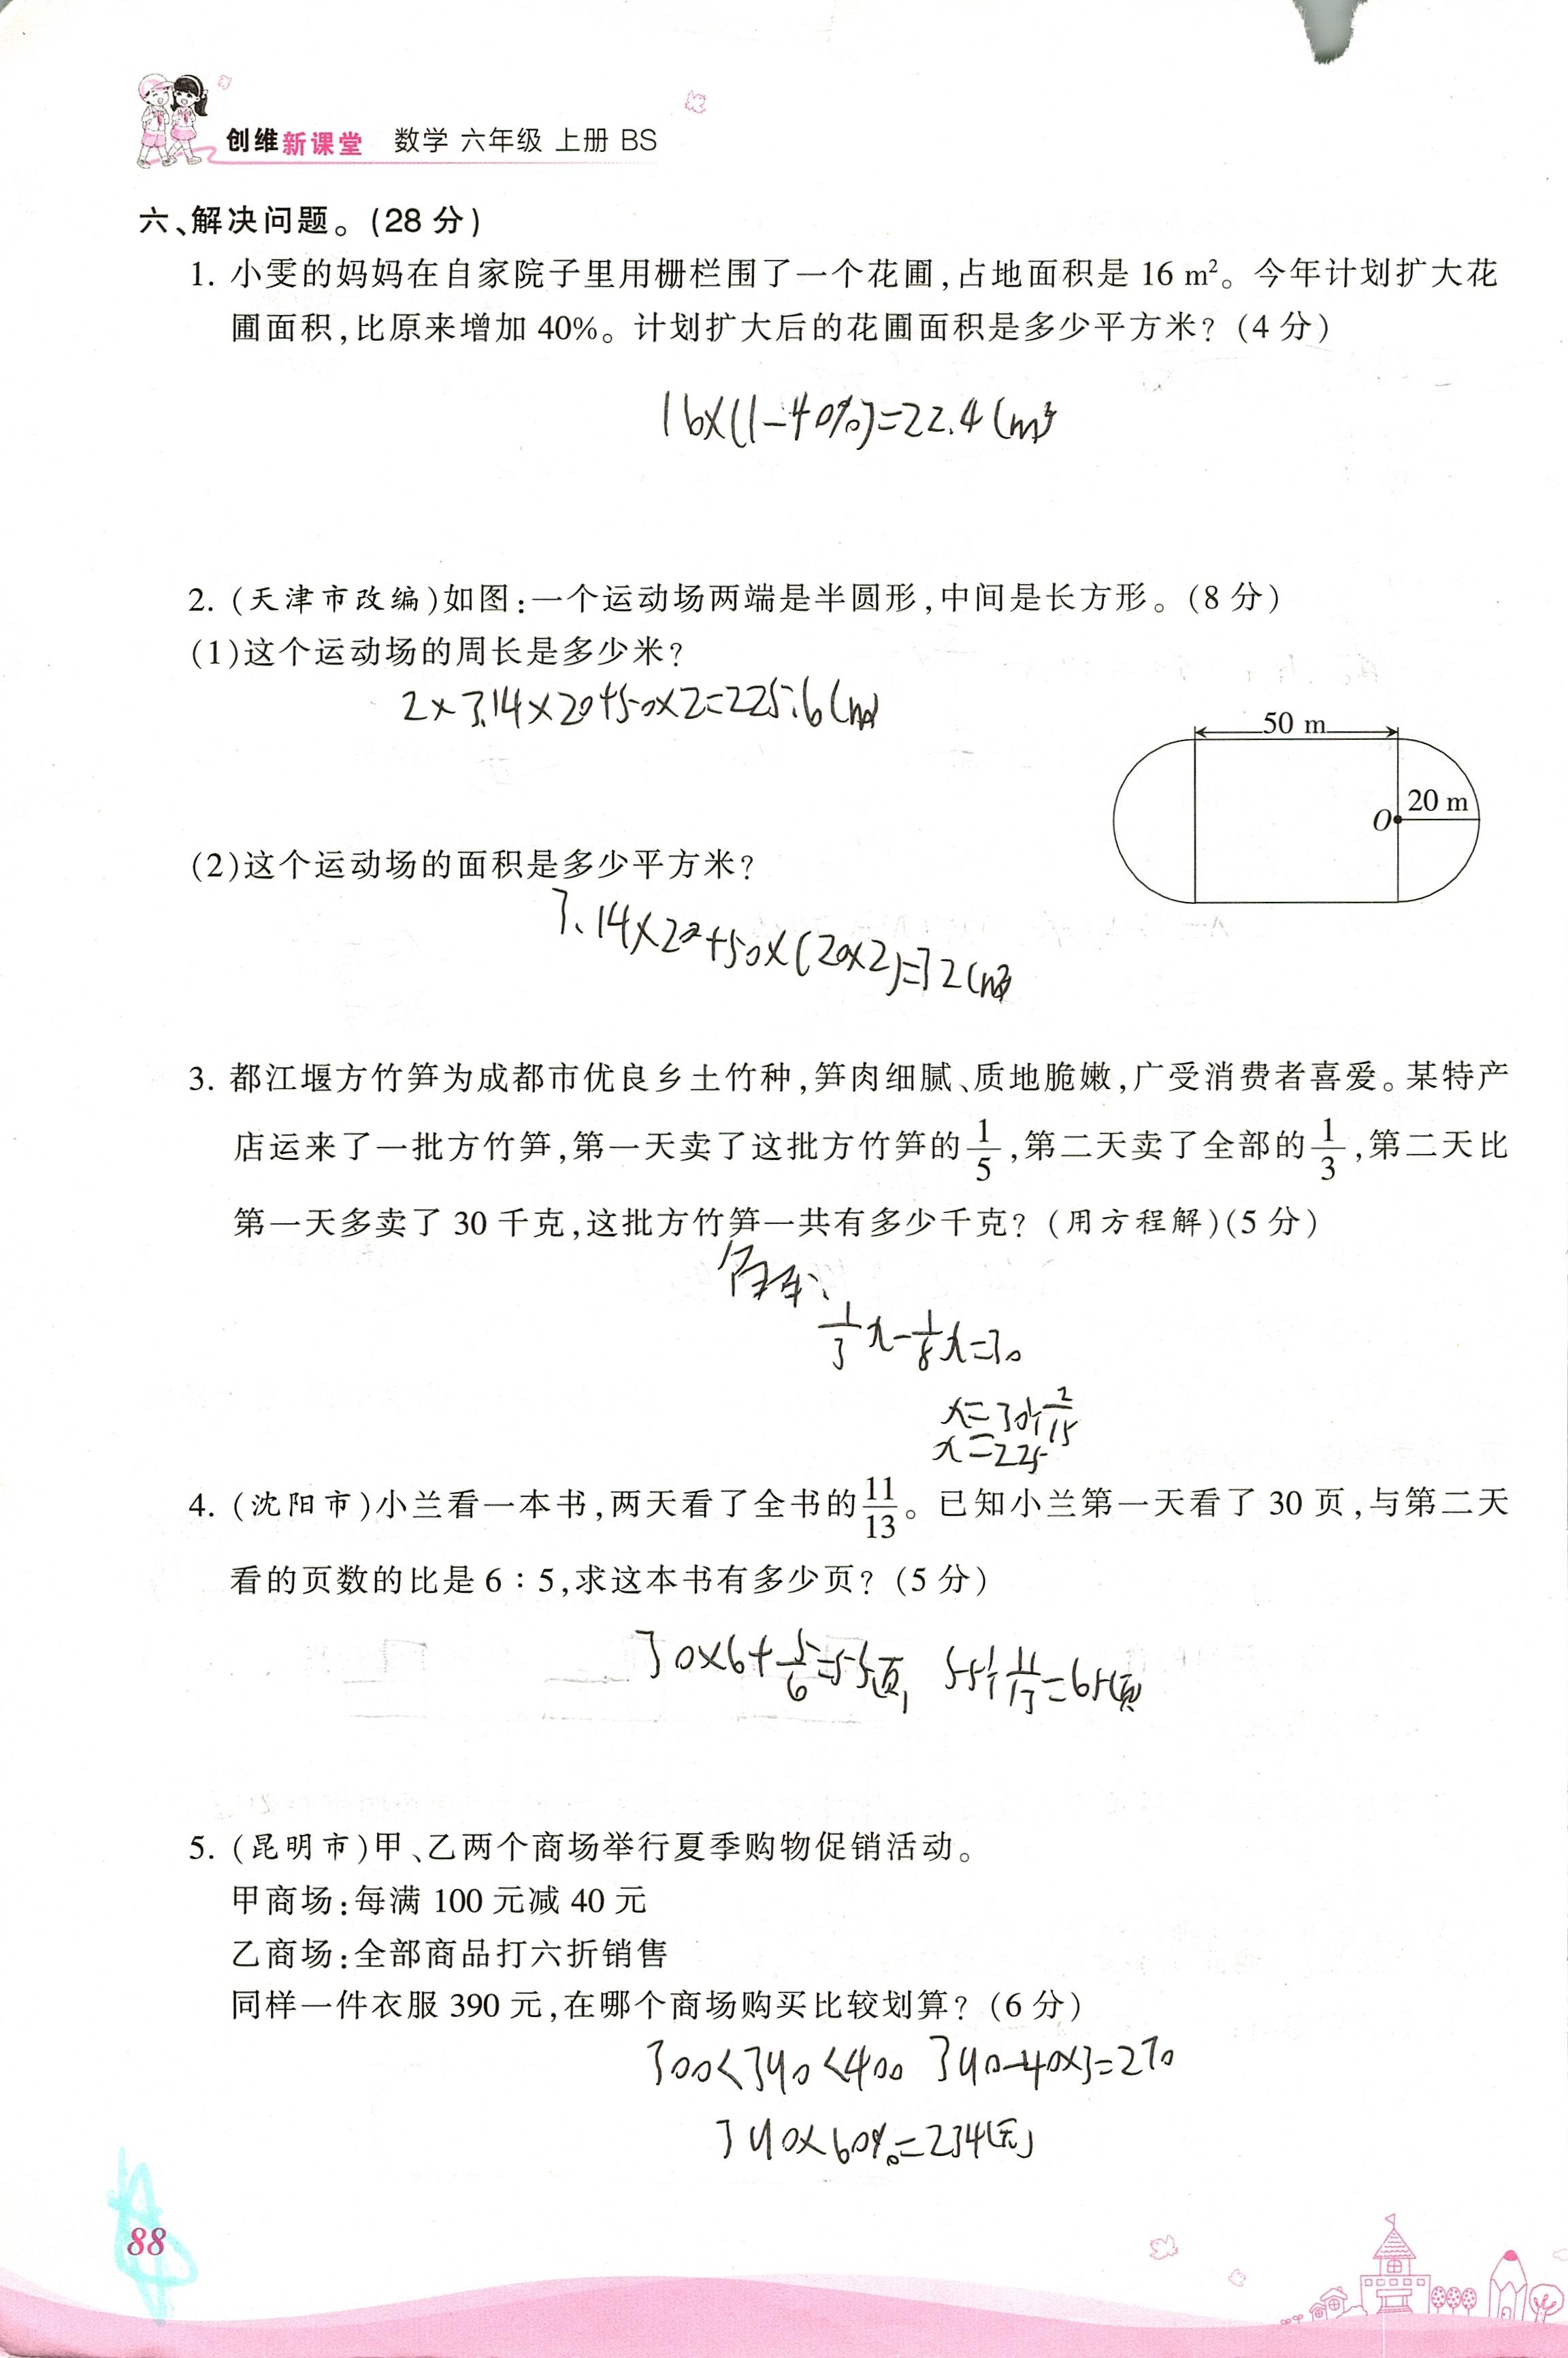 创维新课堂 数学 六年级 上册 BS
六、解决问题。(28 分)
1. 小雯的妈妈在自家院子里用栅栏围了一个花圃,占地面积是 16 m²。今年计划扩大花
圃面积,比原来增加 40%。计划扩大后的花圃面积是多少平方米? (4 分)
16×(1-40%)=22.4(m²
2. (天津市改编)如图:一个运动场两端是半圆形,中间是长方形。(8 分)
(1)这个运动场的周长是多少米?
2×3.14×20+50×2=225.6(m)
50 m
20 m
O
(2)这个运动场的面积是多少平方米?
3.14×20²+50×(20×2)=32(m²
3. 都江堰方竹笋为成都市优良乡土竹种,笋肉细腻、质地脆嫩,广受消费者喜爱。某特产
店运来了一批方竹笋,第一天卖了这批方竹笋的1/5,第二天卖了全部的1/3,第二天比
第一天多卖了 30 千克,这批方竹笋一共有多少千克? (用方程解)(5 分)
1/3x-1/8x=30
x=30÷2/15
x=225
4. (沈阳市)小兰看一本书,两天看了全书的11/13。已知小兰第一天看了 30 页,与第二天
看的页数的比是 6∶5,求这本书有多少页? (5 分)
30×6+5/6=55页) 55÷11/13=65(页
5. (昆明市)甲、乙两个商场举行夏季购物促销活动。
甲商场:每满 100 元减 40 元
乙商场:全部商品打六折销售
同样一件衣服 390 元,在哪个商场购买比较划算? (6 分)
300<390<400 390-40×3=270
390×60%=234(元)
88